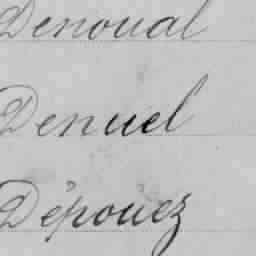 Denoual
Denuel
Dépouez